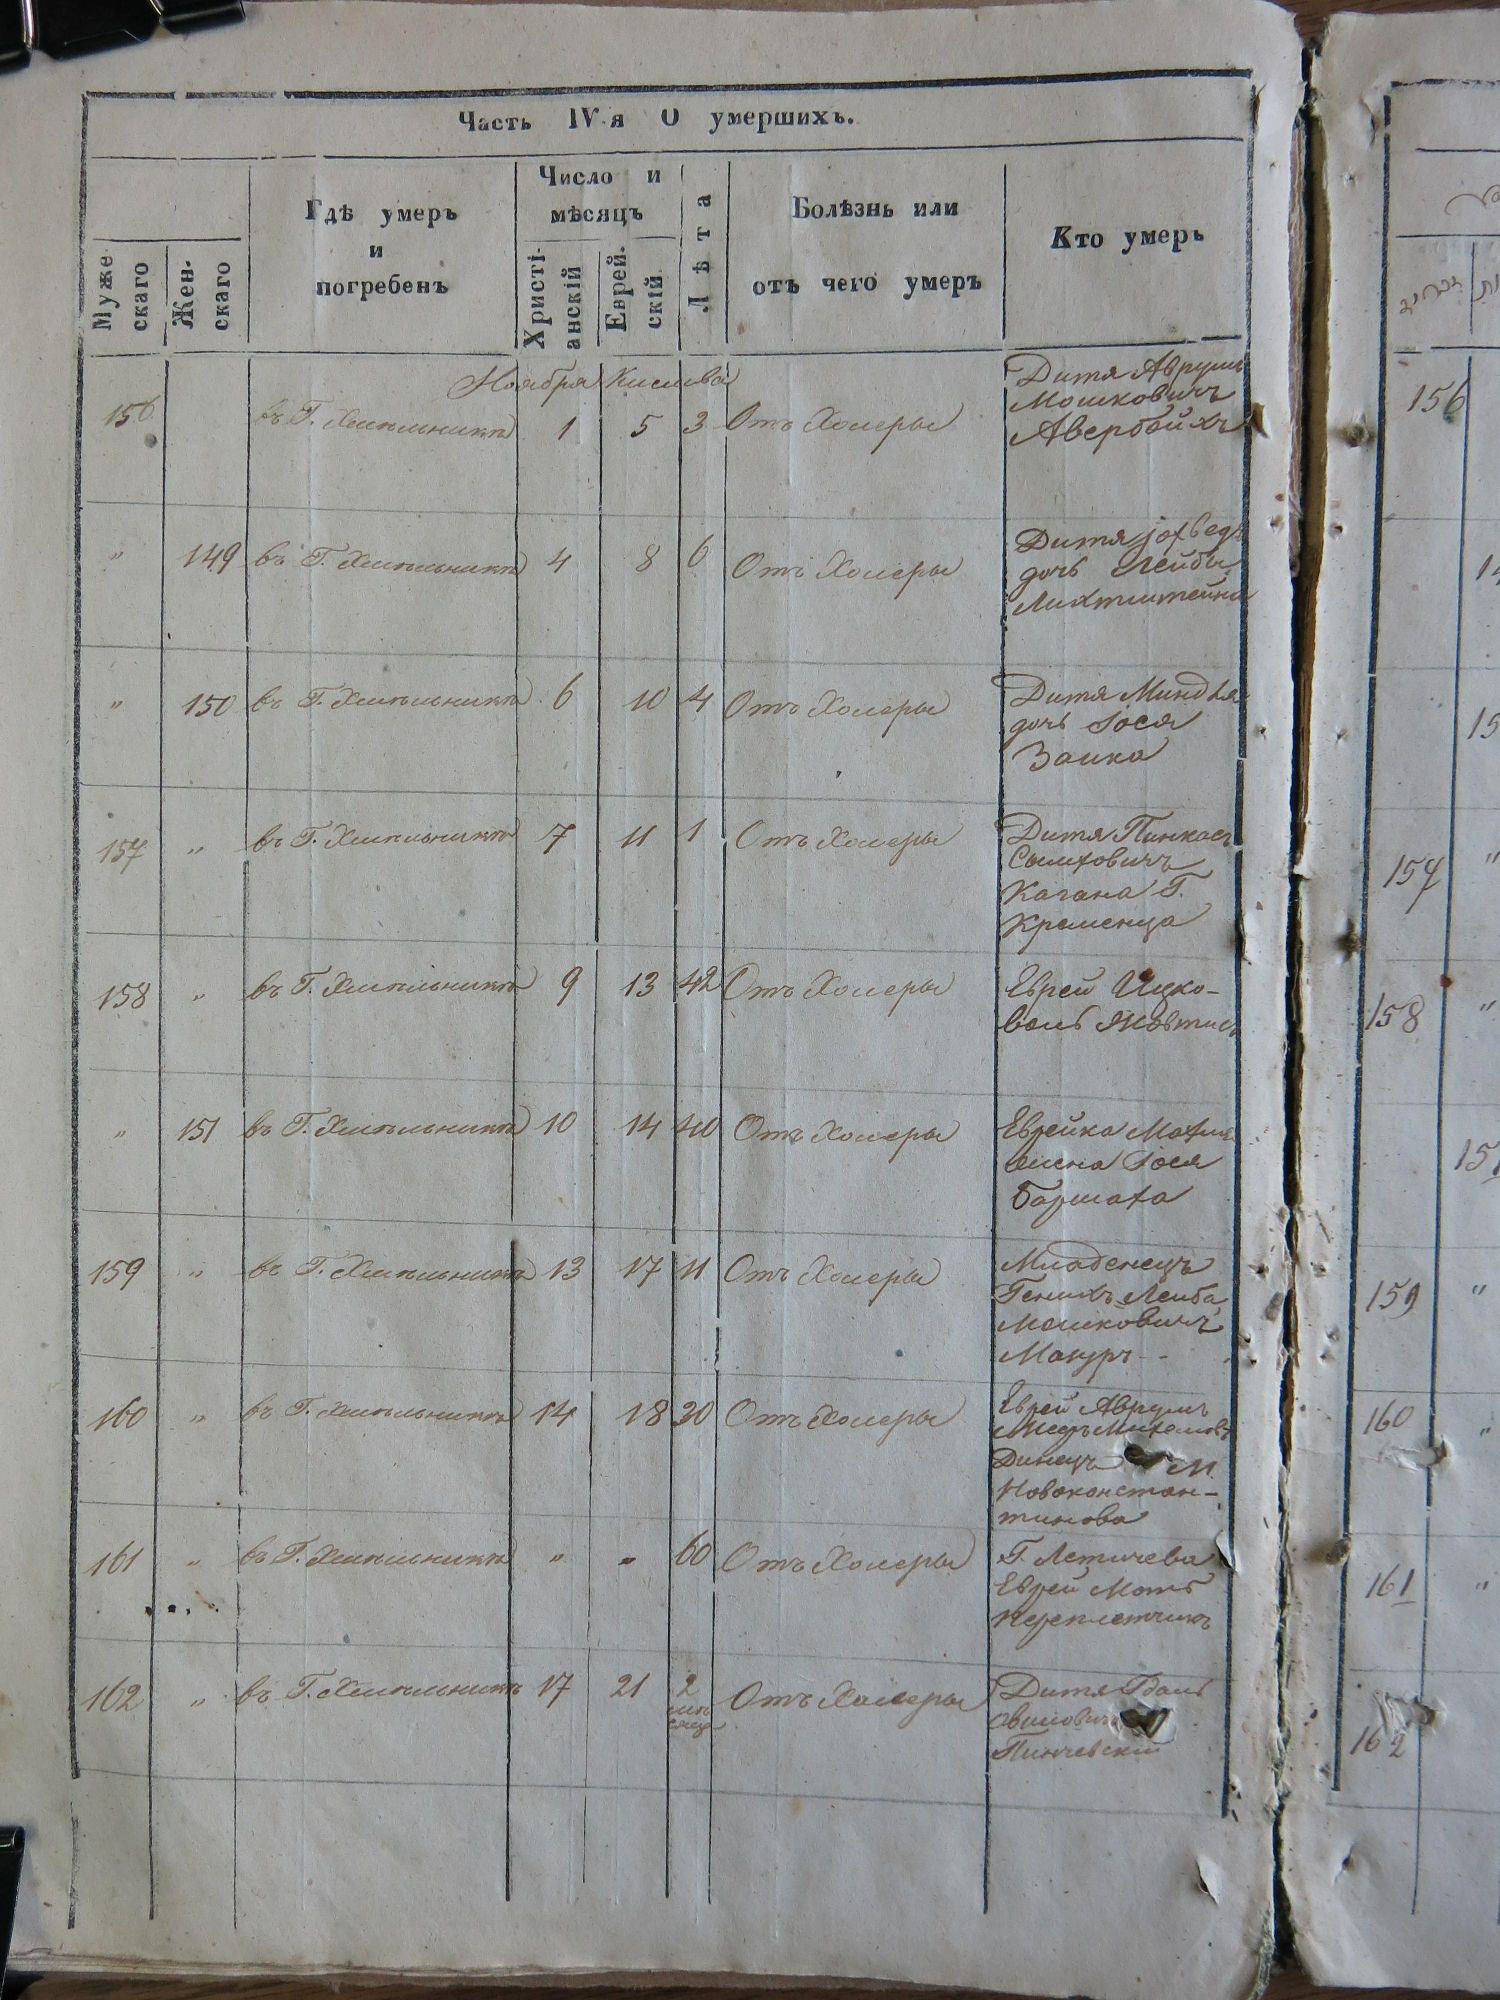 Часть IV-я О умершихъ.
Муже-скаго Жен-скаго Гдѣ умеръ и погребенъ Число и мѣсяцъ Христі-анскій Еврей-скій Лѣта Болѣзнь или отъ чего умеръ Кто умеръ
Ноября Кислева
156 въ Г. Хмѣльникѣ 1 5 3 Отъ Холеры Дитя Аврумъ
Мошковичъ
Авербойхъ
" 149 въ Г. Хмѣльникѣ 4 8 6 Отъ Холеры Дитя Іохведъ
дочь Лейбы
Лихтштейна
" 150 въ Г. Хмѣльникѣ 6 10 4 Отъ Холеры Дитя Миндля
дочь Іося
Заика
157 " въ Г. Хмѣльникѣ 7 11 1 Отъ Холеры Дитя Пинкасъ
Сымховичъ
Кагана Г.
Кременца
158 " въ Г. Хмѣльникѣ 9 13 42 Отъ Холеры Еврей Ицко-
воль
" 151 въ Г. Хмѣльникѣ 10 14 40 Отъ Холеры Еврейка
жена Іося
159 " въ Г. Хмѣльникѣ 13 17 11 Отъ Холеры Младенецъ
Генихъ Лейба
Мошковичъ
160 " въ Г. Хмѣльникѣ 14 18 30 Отъ Холеры Еврей Аврумъ
М.
Новоконстан-
тинова
161 " въ Г. Хмѣльникѣ " " 60 Отъ Холеры Г. Летичева
Еврей Моть
Переплетчикъ
162 " въ Г. Хмѣльникѣ 17 21 2 мѣсяца Отъ Холеры Дитя
Пинчевскій
156
157 "
158 "
151
159 "
160 "
161 "
162